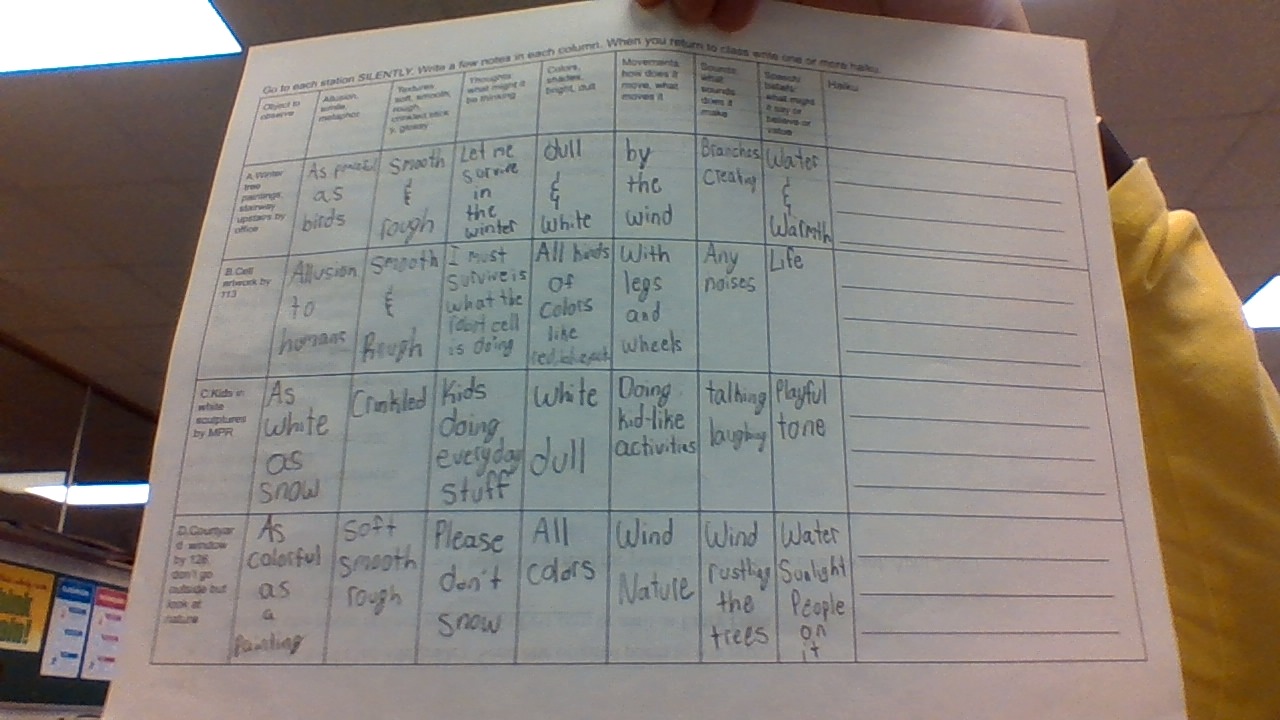 Go to each station SILENTLY. Write a few notes in each column. When you return to class write one or more haiku
Object to
observe
Allusion,
simile,
metaphor
Textures
soft, smooth,
rough,
crinkled, stick
y, glossy
Thoughts
what might it
be thinking
Colors,
shades,
bright, dull
Movements
how does it
move, what
moves it
Sounds
what
sounds
does it
make
Speech/
beliefs:
what might
it say or
believe or
value
Haiku
A. Winter
tree
paintings,
stairway
upstairs by
office
As peaceful
as
birds
Smooth
&
rough
Let me
survive
in
the
winter
dull
&
white
by
the
wind
Branches
Creating
Water
&
Warmth
B. Cell
artwork by
113
Allusion
to
humans
Smooth
&
Rough
I must
survive is
what the
robot cell
is doing
All kinds
of
Colors
like
With
legs
and
wheels
Any
noises
Life
C. Kids in
white
sculptures
by MPR
As
white
as
snow
Crinkled
Kids
doing
everyday
stuff
White
dull
Doing
kid-like
activities
talking
laughing
Playful
tone
D. Courtyar
d window
by 126
don't go
outside but
look at
nature
As
colorful
as
a
Painting
Soft
smooth
rough
Please
don't
snow
All
colors
Wind
Nature
Wind
rustling
the
trees
Water
Sunlight
People
on
it